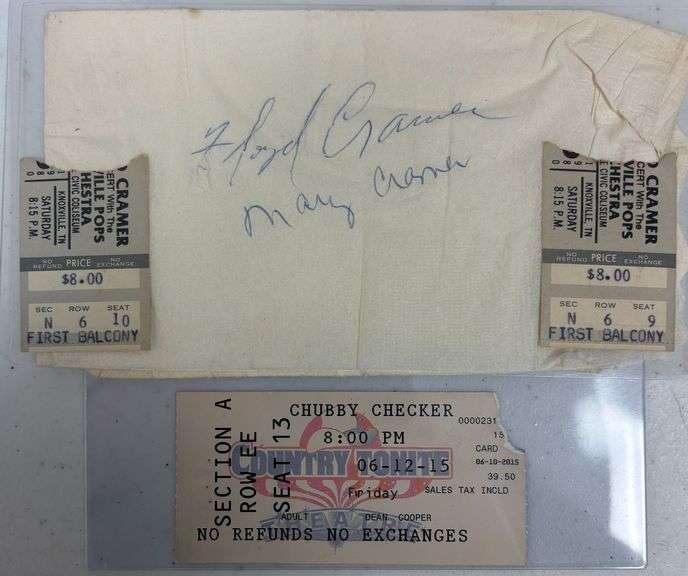 Floyd Cramer
Mary Cramer
CRAMER
CERT With The
VILLE POPS
HESTRA
CIVIC COLISEUM
KNOXVILLE, TN
SATURDAY
8:15 P.M.
NO REFUND PRICE NO EXCHANGE
$8.00
SEC ROW SEAT
N 6 10
FIRST BALCONY
O CRAMER
CERT With The
VILLE POPS
HESTRA
CIVIC COLISEUM
KNOXVILLE, TN
SATURDAY
8:15 P.M.
NO REFUND PRICE NO EXCHANGE
$8.00
SEC ROW SEAT
N 6 9
FIRST BALCONY
SECTION A
ROW EE
SEAT 13
CHUBBY CHECKER
0000231
8:00 PM
15
CARD
COUNTRY TONITE
06-12-15
06-10-2015
39.50
Friday
SALES TAX INCLD
THEATRE
ADULT DEAN COOPER
NO REFUNDS NO EXCHANGES